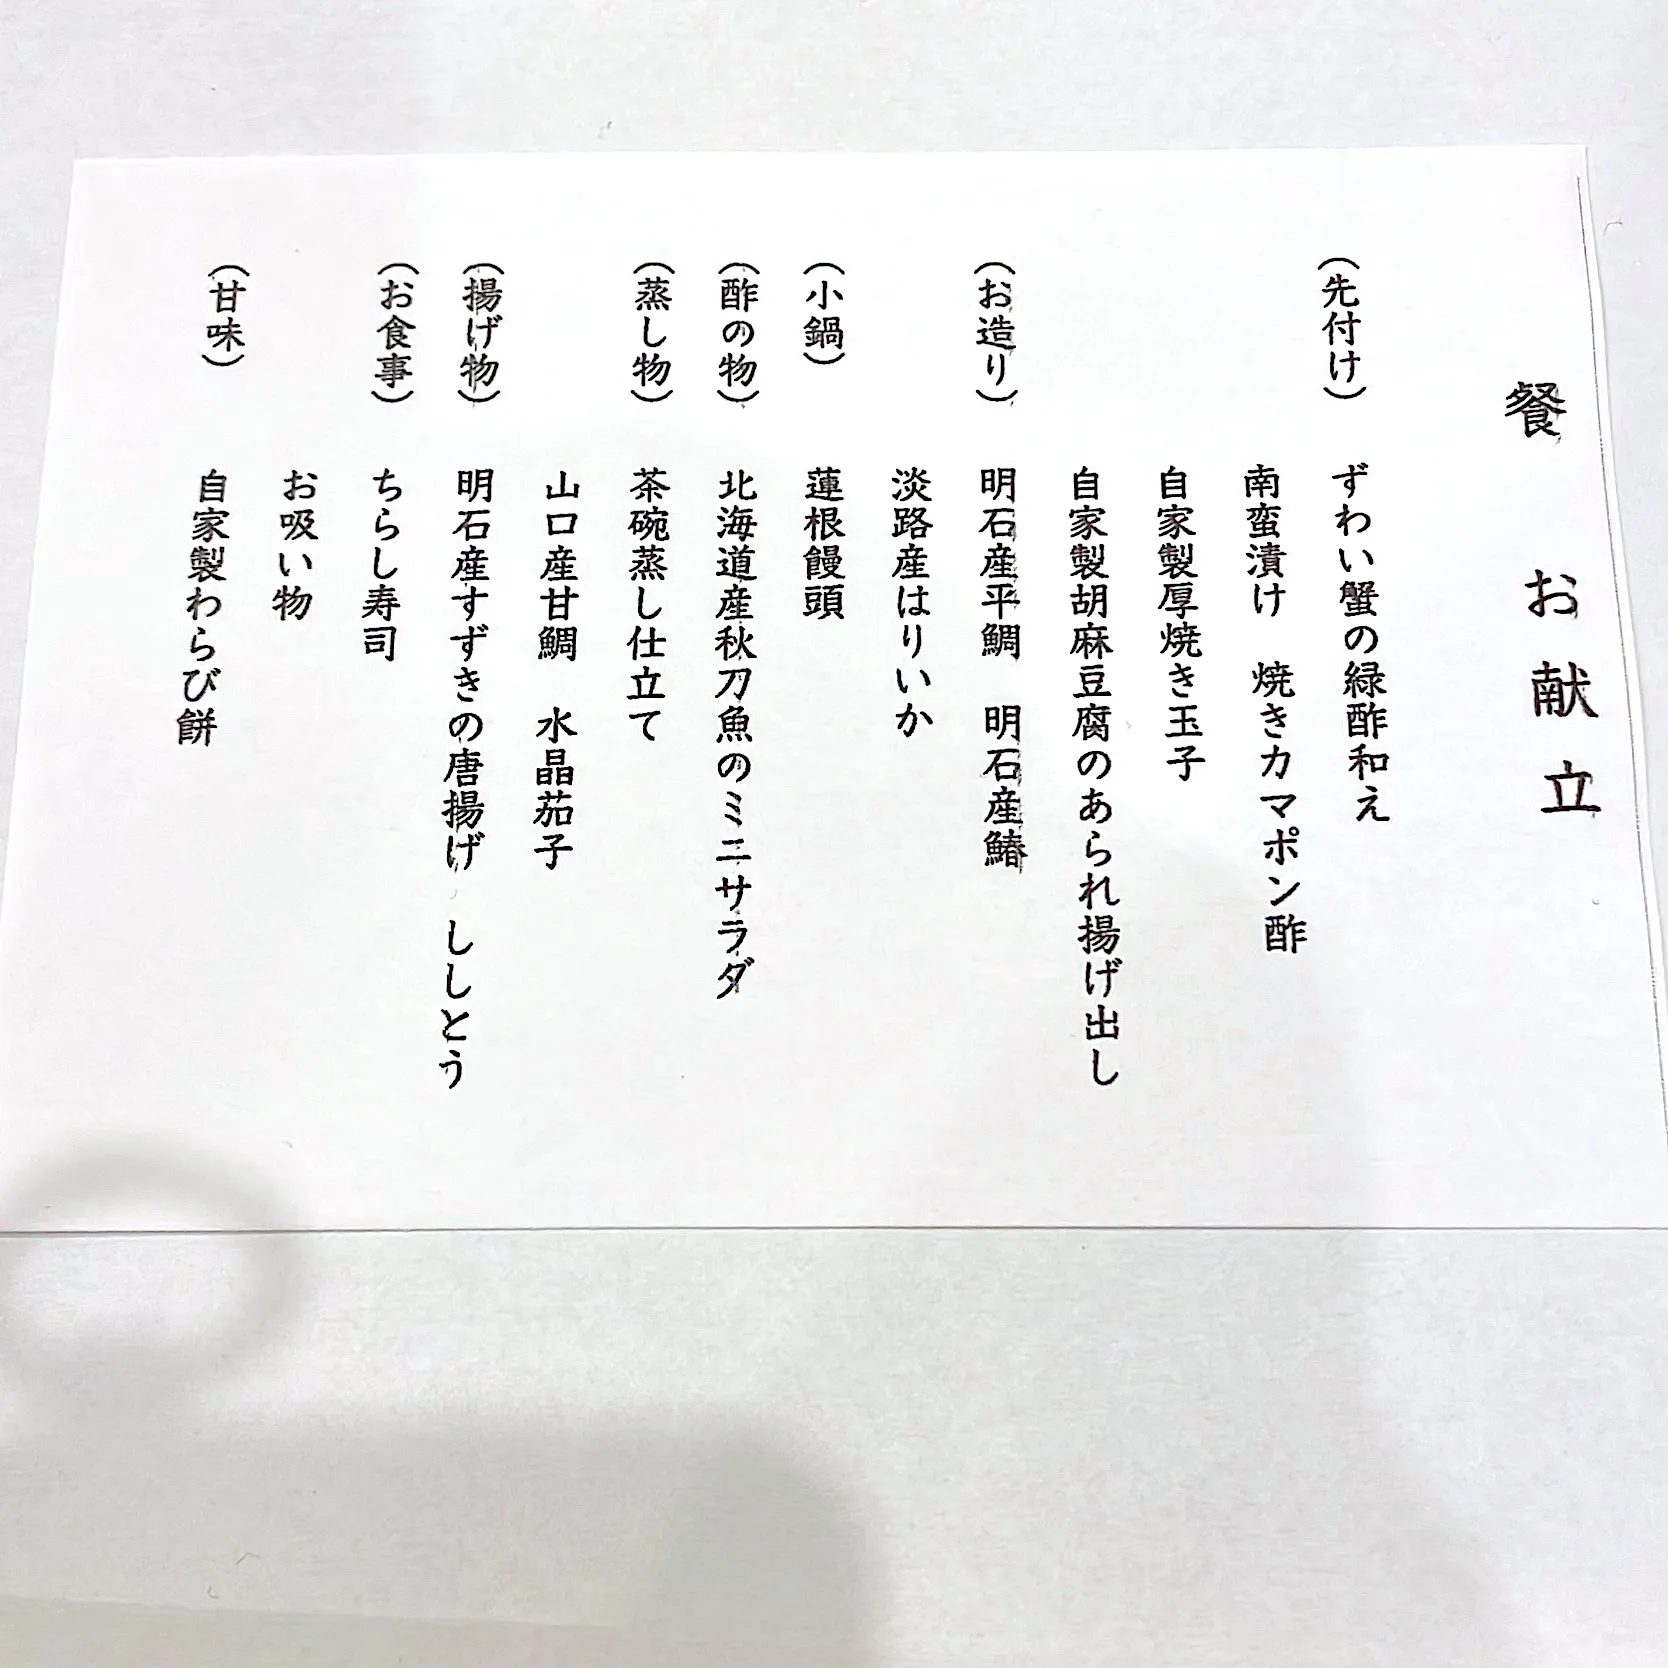 餐 お献立
（先付け） ずわい蟹の緑酢和え
南蛮漬け 焼きカマポン酢
自家製厚焼き玉子
自家製胡麻豆腐のあられ揚げ出し
（お造り） 明石産平鯛 明石産鰆
淡路産はりいか
（小鍋） 蓮根饅頭
（酢の物） 北海道産秋刀魚のミニサラダ
（蒸し物） 茶碗蒸し仕立て
山口産甘鯛 水晶茄子
（揚げ物） 明石産すずきの唐揚げ ししとう
（お食事） ちらし寿司
お吸い物
（甘味） 自家製わらび餅